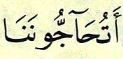 أَتُحَآجُّونَنَا